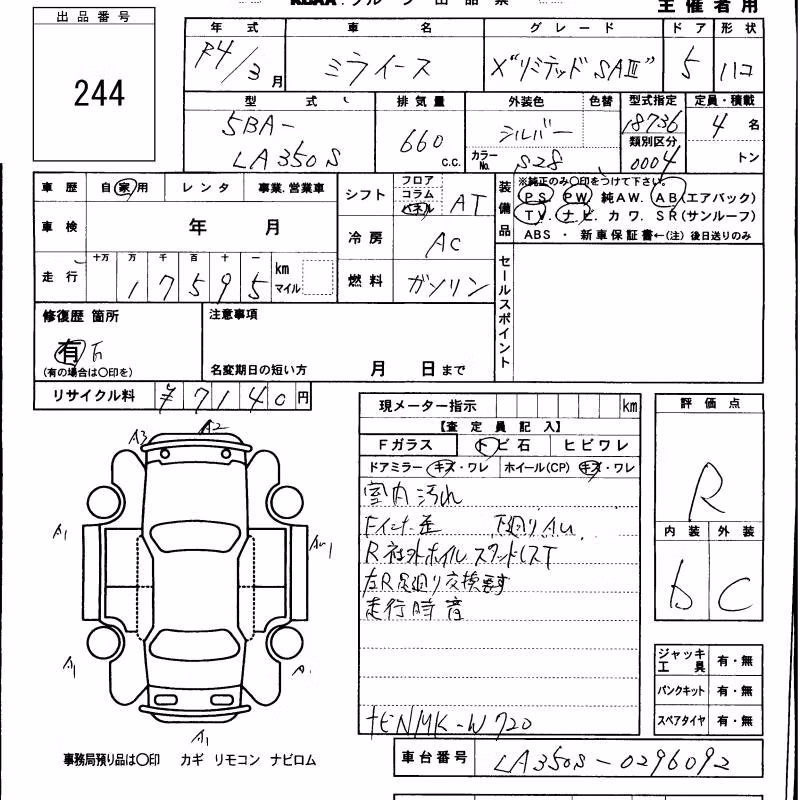 主催者用
出品番号
244
年式 車名 グレード ドア 形状
R4/3月 ミライース X"リミテッドSAⅢ" 5 ハコ
型式 排気量 外装色 色替 型式指定 定員・積載
5BA-LA350S 660 c.c. シルバー 18736 4名
カラーNo. S28 類別区分 0004 トン
車歴 自家用 レンタ 事業.営業車
シフト フロア コラム パネル AT
装備品 ※純正のみ〇印をつけて下さい。
PS PW 純AW. AB(エアバック)
TV. ナビ. カワ. SR(サンルーフ)
ABS ・ 新車保証書←(注) 後日送りのみ
車検 年 月
冷房 AC
走行 十万 万 千 百 十 一 km マイル
17595
燃料 ガソリン
セールスポイント
修復歴 箇所 注意事項
有
(有の場合は〇印を)
名変期日の短い方 月 日まで
リサイクル料 ¥7140円
現メーター指示 km
【査定員記入】
Fガラス トビ石 ヒビワレ
ドアミラー キズ・ワレ ホイール(CP) キズ・ワレ
室内汚れ
下廻りAU
R社外ホイル
左R足廻り交換要す
走行時音
TENMK-W720
評価点
R
内装 外装
b C
ジャッキ工具 有・無
パンクキット 有・無
スペアタイヤ 有・無
A3 A2
A1 AU1
A1 A
A1
事務局預り品は〇印 カギ リモコン ナビロム
車台番号 LA350S-0296092